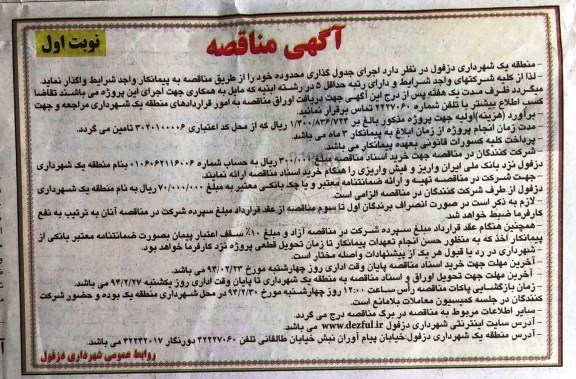 نوبت اول
آگهی مناقصه
- منطقه یک شهرداری دزفول در نظر دارد اجرای جدول گذاری محدوده خود را از طریق مناقصه به پیمانکار واجد شرایط واگذار نماید.
- لذا از کلیه شرکتهای واجد شرایط و دارای رتبه حداقل ۵ در رشته ابنیه که مایل به همکاری جهت اجرای این پروژه می باشند تقاضا
میگردد ظرف مدت یک هفته پس از درج این آگهی جهت دریافت اوراق مناقصه به امور قراردادهای منطقه یک شهرداری مراجعه و جهت
کسب اطلاع بیشتر با تلفن شماره ۴۲۲۲۷۰۶۰ تماس برقرار نمائید.
- برآورد (هزینه) اولیه جهت پروژه مذکور بالغ بر ۱/۳۰۰/۸۳۶/۷۲۳ ریال که از محل کد اعتباری ۳۰۲۰۱۰۰۰۰۶ تامین می گردد.
- مدت زمان انجام پروژه از زمان ابلاغ به پیمانکار ۳ ماه می باشد.
- پرداخت کلیه کسورات قانونی بعهده پیمانکار می باشد.
- شرکت کنندگان در مناقصه جهت خرید اسناد مناقصه مبلغ ۳۰۰/۰۰۰ ریال به حساب شماره ۰۱۰۶۰۶۲۱۱۶۰۰۶ بنام منطقه یک شهرداری
دزفول نزد بانک ملی ایران واریز و فیش واریزی را هنگام خرید اسناد مناقصه ارائه نمایند.
جهت شرکت در مناقصه تهیه و ارائه ضمانتنامه معتبر و یا چک بانکی معتبر به مبلغ ۷۰/۰۰۰/۰۰۰ ریال به نام منطقه یک شهرداری
دزفول از طرف شرکت کنندگان در مناقصه الزامی است.
- لازم به ذکر است در صورت انصراف برندگان اول تا سوم مناقصه از عقد قرارداد مبلغ سپرده شرکت در مناقصه آنان به ترتیب به نفع
کارفرما ضبط خواهد شد.
- همچنین هنگام عقد قرارداد مبلغ سپرده شرکت در مناقصه آزاد و مبلغ ۱۰٪ سقف اعتبار پیمان بصورت ضمانتنامه معتبر بانکی از
پیمانکار اخذ که به منظور حسن انجام تعهدات پیمانکار تا زمان تحویل قطعی پروژه نزد کارفرما خواهد بود.
- شهرداری در رد یا قبول هر یک از پیشنهادات واصله مختار است.
- آخرین مهلت جهت خرید اسناد مناقصه پایان وقت اداری روز چهارشنبه مورخ ۹۴/۰۲/۲۳ می باشد.
- آخرین مهلت جهت تحویل اوراق و اسناد مناقصه به منطقه یک شهرداری تا پایان وقت اداری روز یکشنبه ۹۴/۲/۲۷ می باشد.
- زمان بازگشایی پاکات مناقصه رأس ساعت ۱۲:۰۰ روز چهارشنبه مورخ ۹۴/۲/۳۰ در محل شهرداری منطقه یک بوده و حضور شرکت
کنندگان در جلسه کمیسیون معاملات بلامانع است.
- سایر اطلاعات مربوط به مناقصه در برگ مناقصه درج می گردد.
- آدرس سایت اینترنتی شهرداری دزفول www.dezful.ir می باشد.
- آدرس منطقه یک شهرداری دزفول: خیابان پیام آوران نبش خیابان طالقانی تلفن ۴۲۲۲۷۰۶۰ دورنگار ۴۲۲۳۲۰۱۷ می باشد.
روابط عمومی شهرداری دزفول